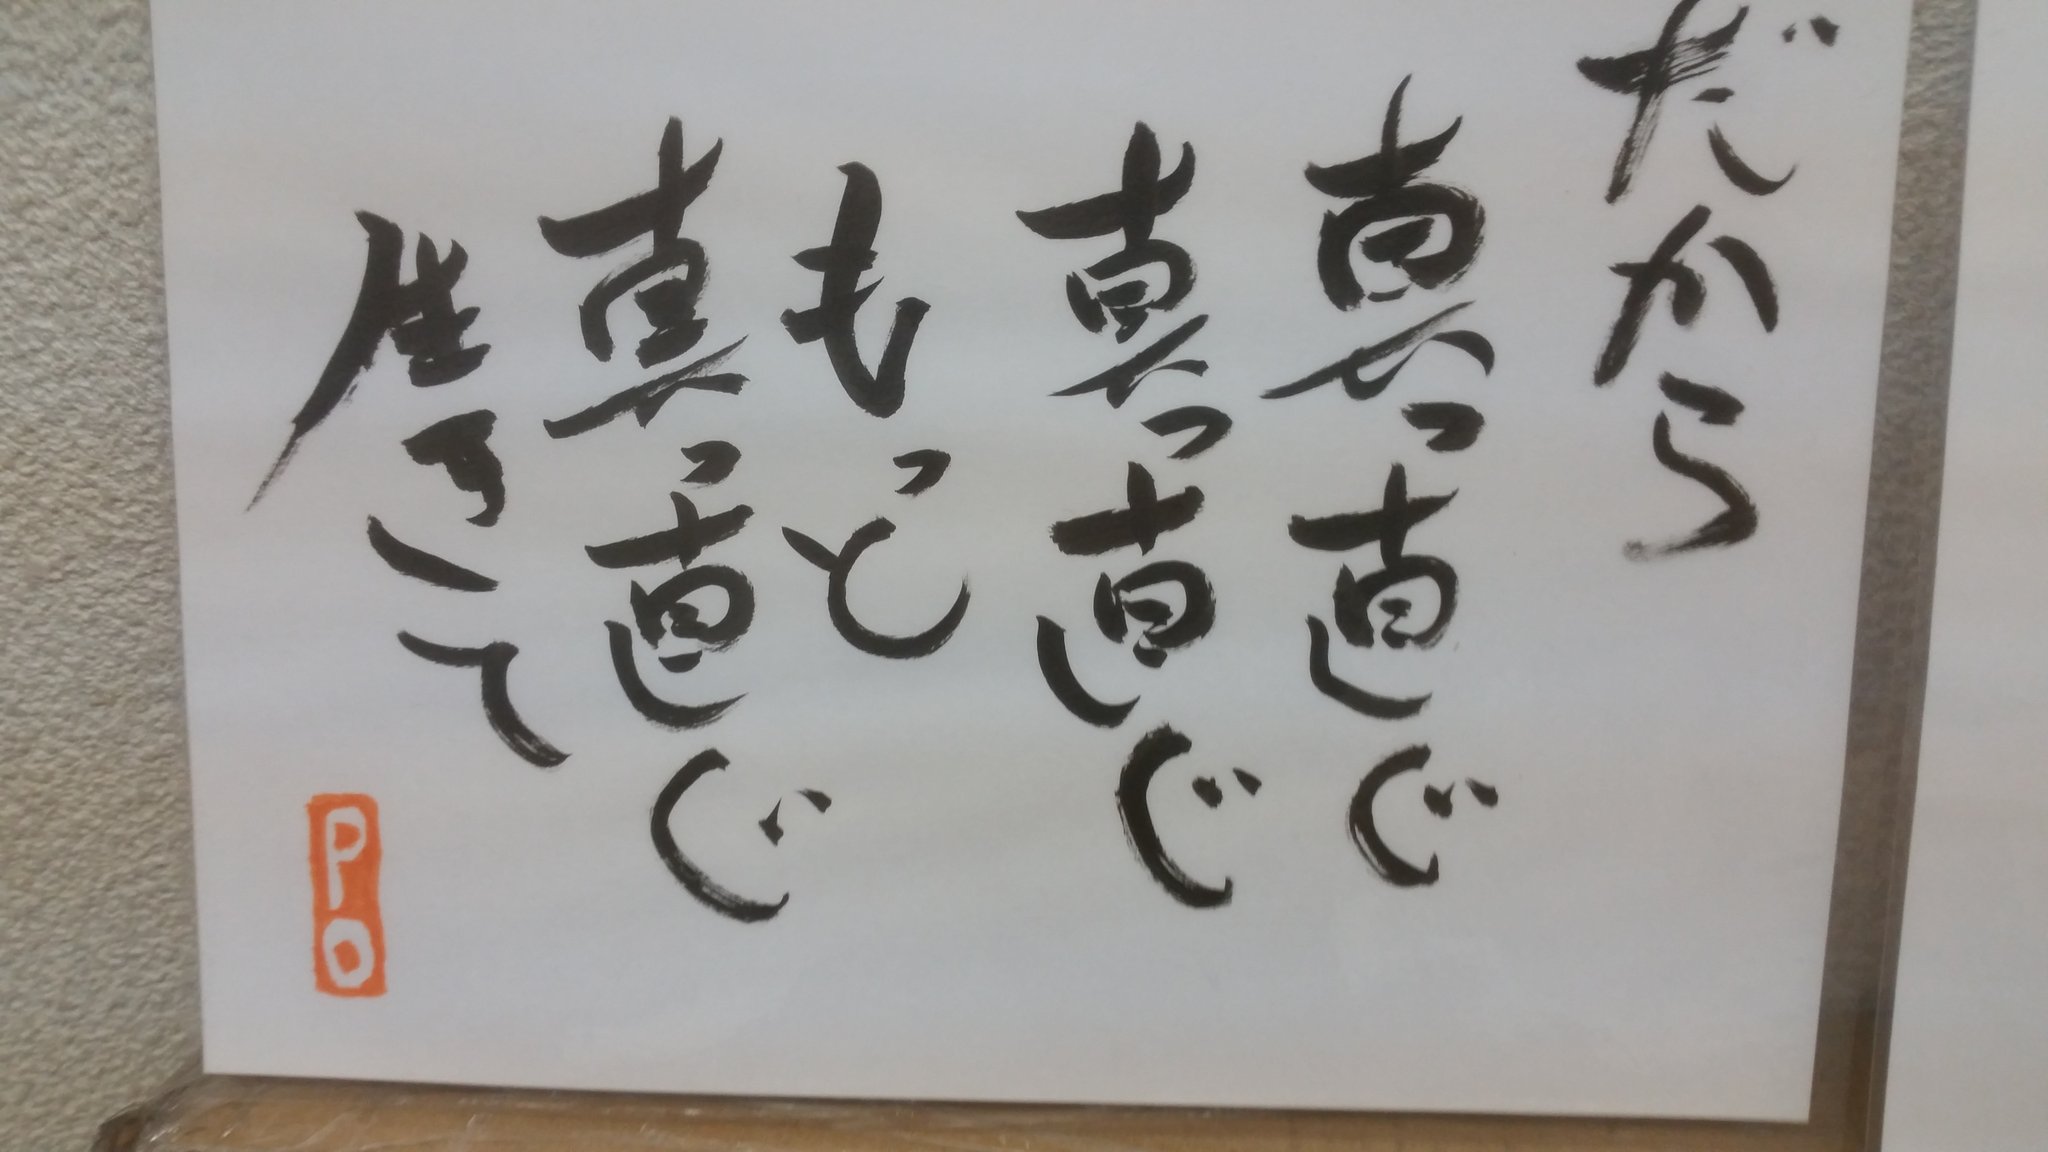 だから
真っ直ぐ
真っ直ぐ
もっと
真っ直ぐ
生きて
PO